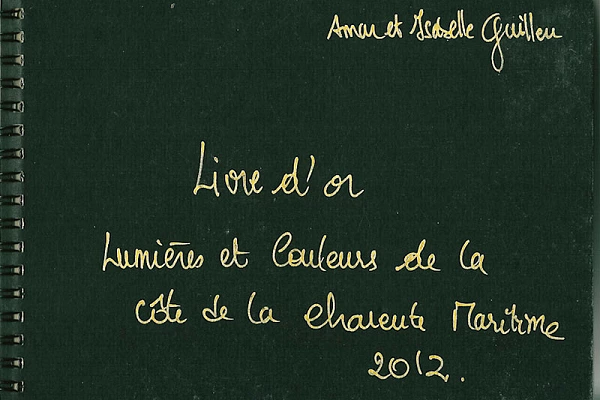 Amar et Isabelle Guillen
Livre d'or
Lumières et Couleurs de la
côte de la Charente Maritime
2012.